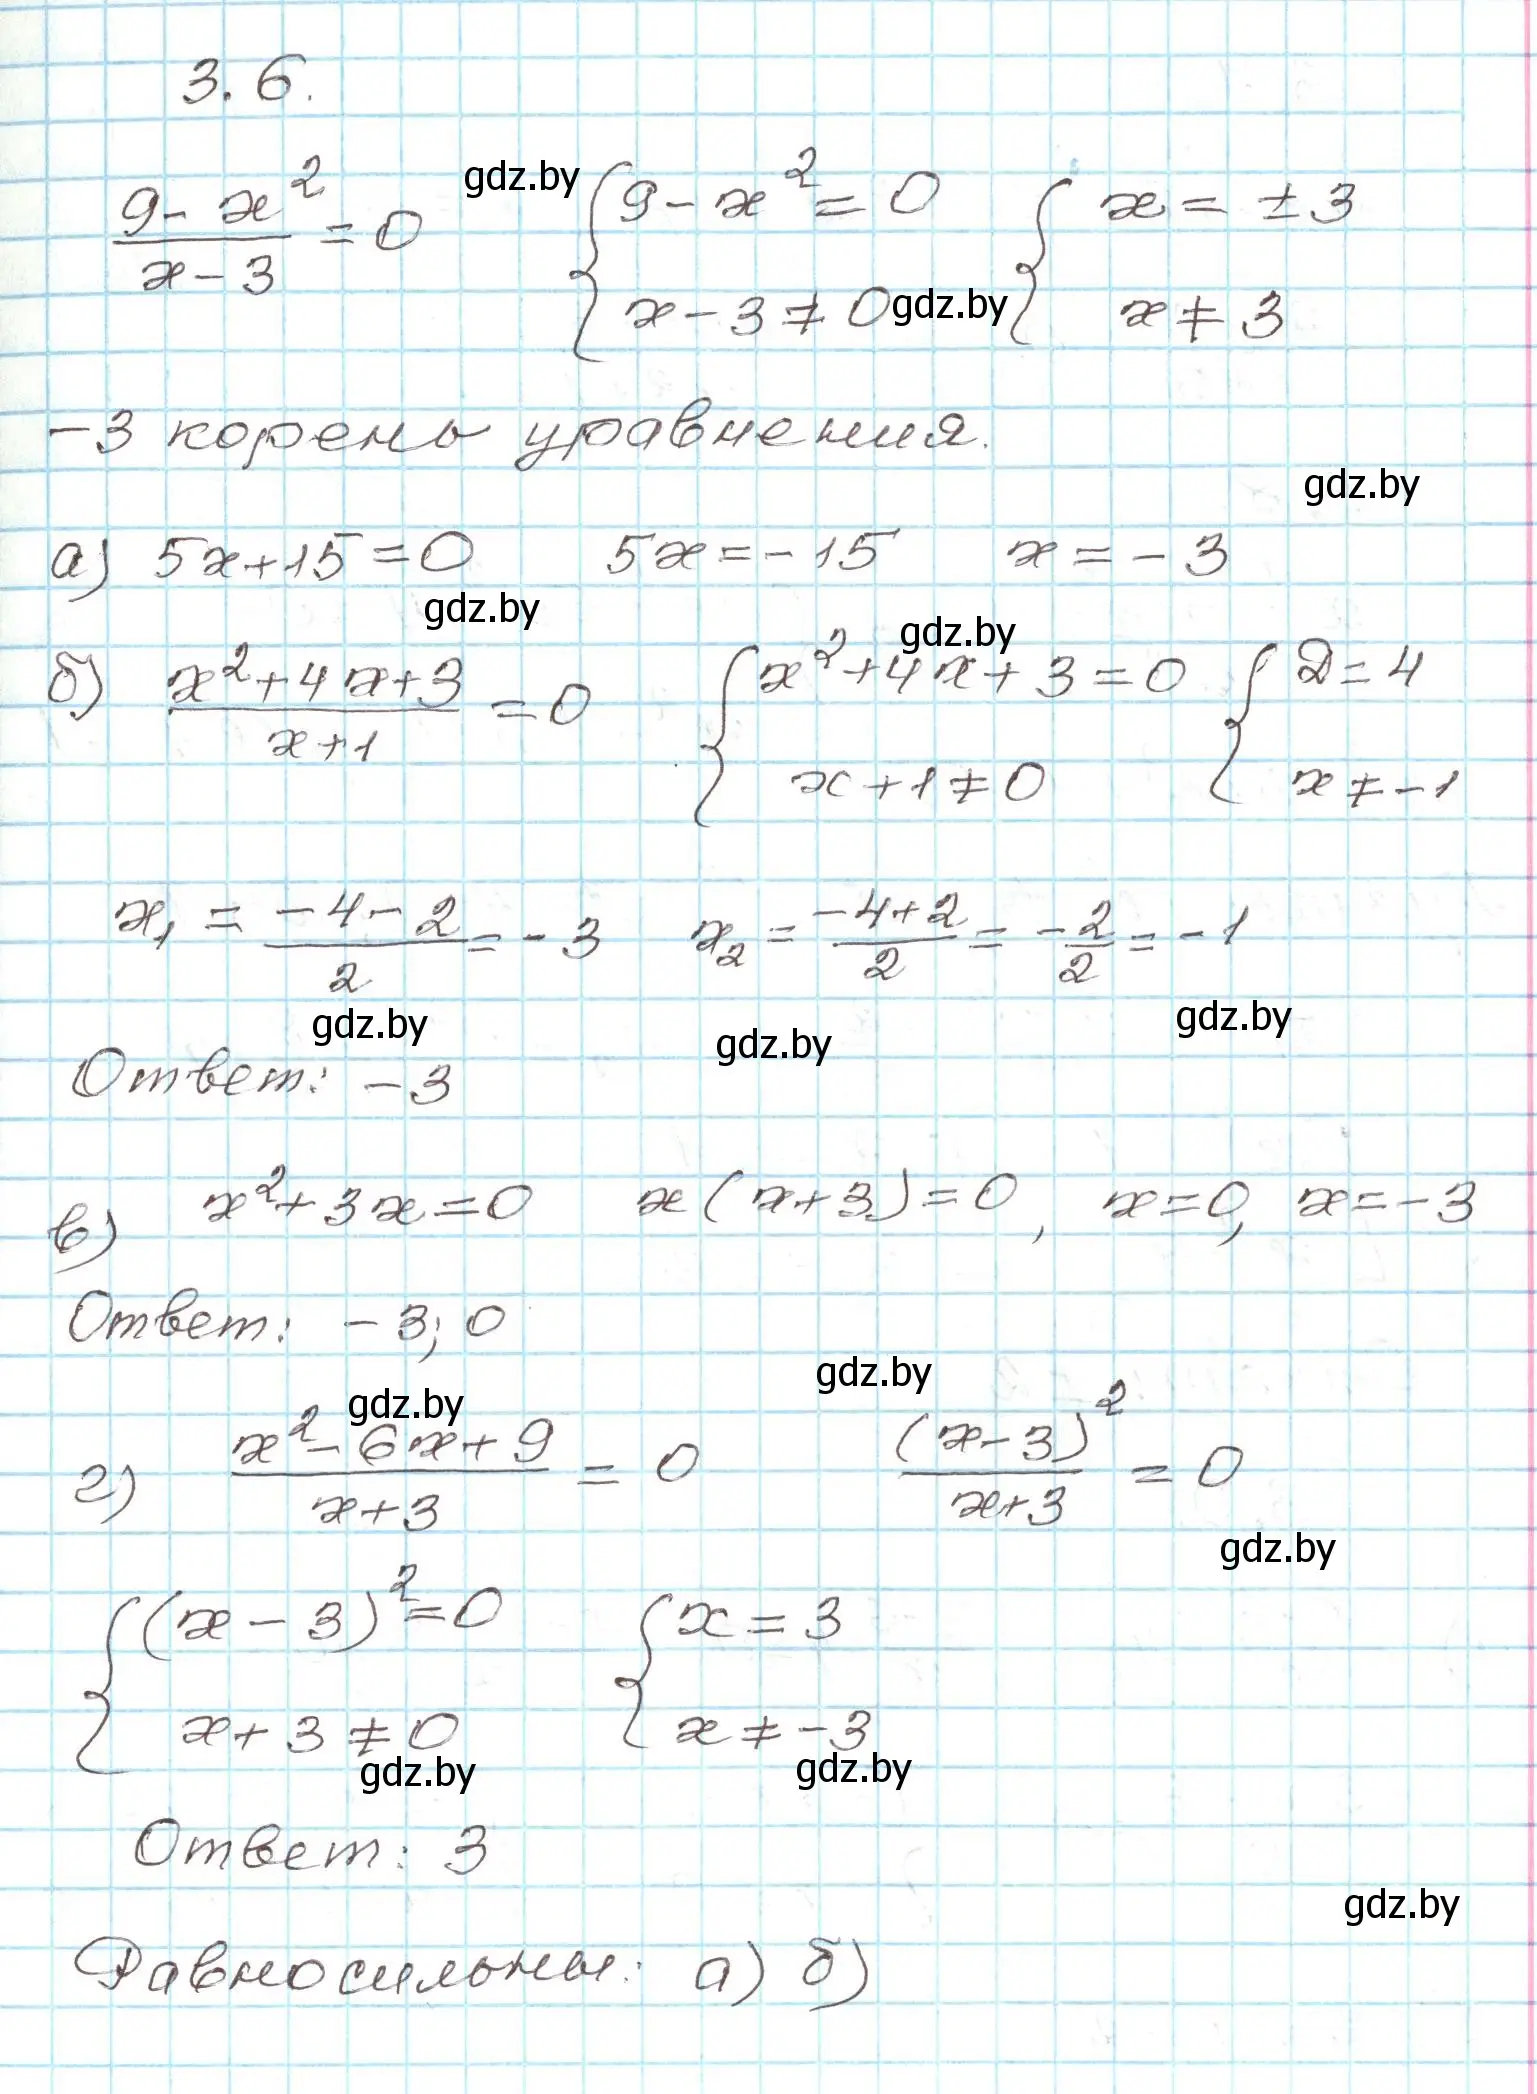 3.6.
(9-x²)/(x-3) = 0 gdz.by { 9-x² = 0 { x = ±3
x-3 ≠ 0 gdz.by x ≠ 3
-3 корень уравнения.
gdz.by
а) 5x+15=0 5x=-15 x=-3
gdz.by gdz.by
б) (x²+4x+3)/(x+1) = 0 { x²+4x+3=0 { D=4
x+1≠0 x≠-1
x₁ = (-4-2)/2 = -3 x₂ = (-4+2)/2 = -2/2 = -1
gdz.by gdz.by gdz.by
Ответ: -3
в) x²+3x=0 x(x+3)=0, x=0, x=-3
Ответ: -3; 0
gdz.by gdz.by
г) (x²-6x+9)/(x+3) = 0 (x-3)²/(x+3) = 0
gdz.by
{ (x-3)²=0 { x=3
x+3≠0 x≠-3
gdz.by gdz.by
Ответ: 3
gdz.by
Равносильны: а) б)